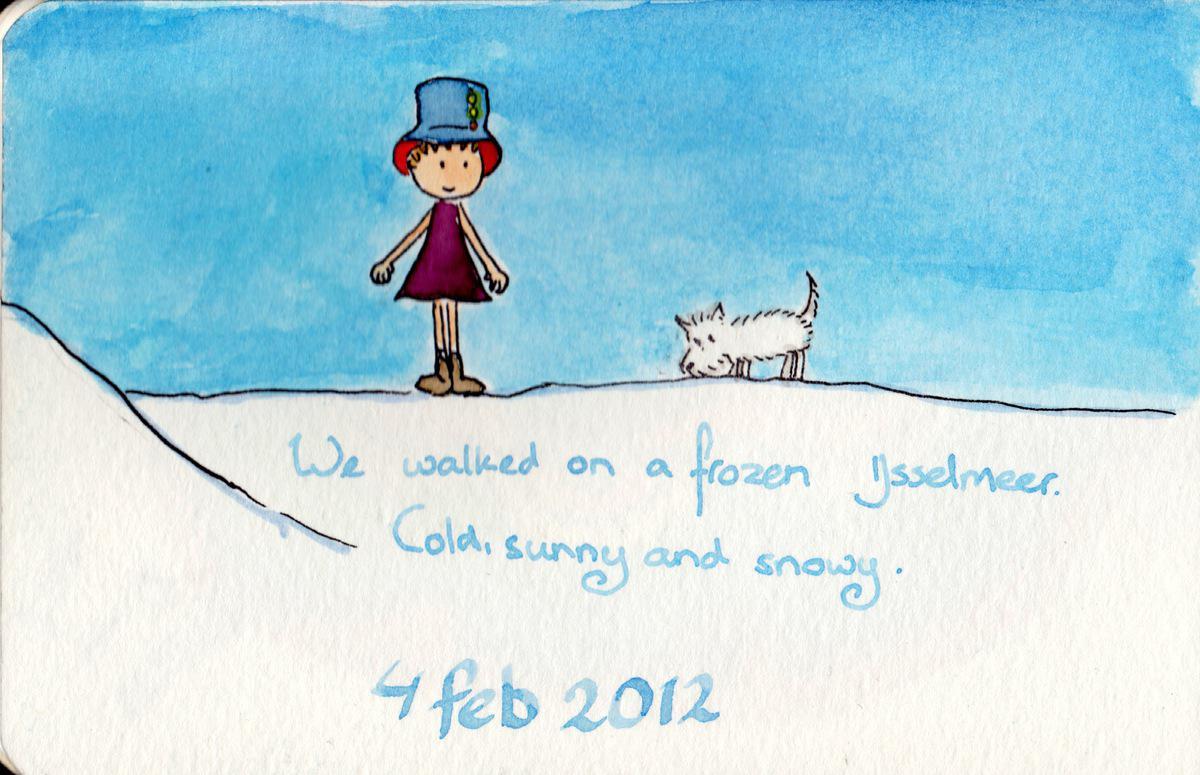 We walked on a frozen IJsselmeer.
Cold, sunny and snowy.
4 feb 2012